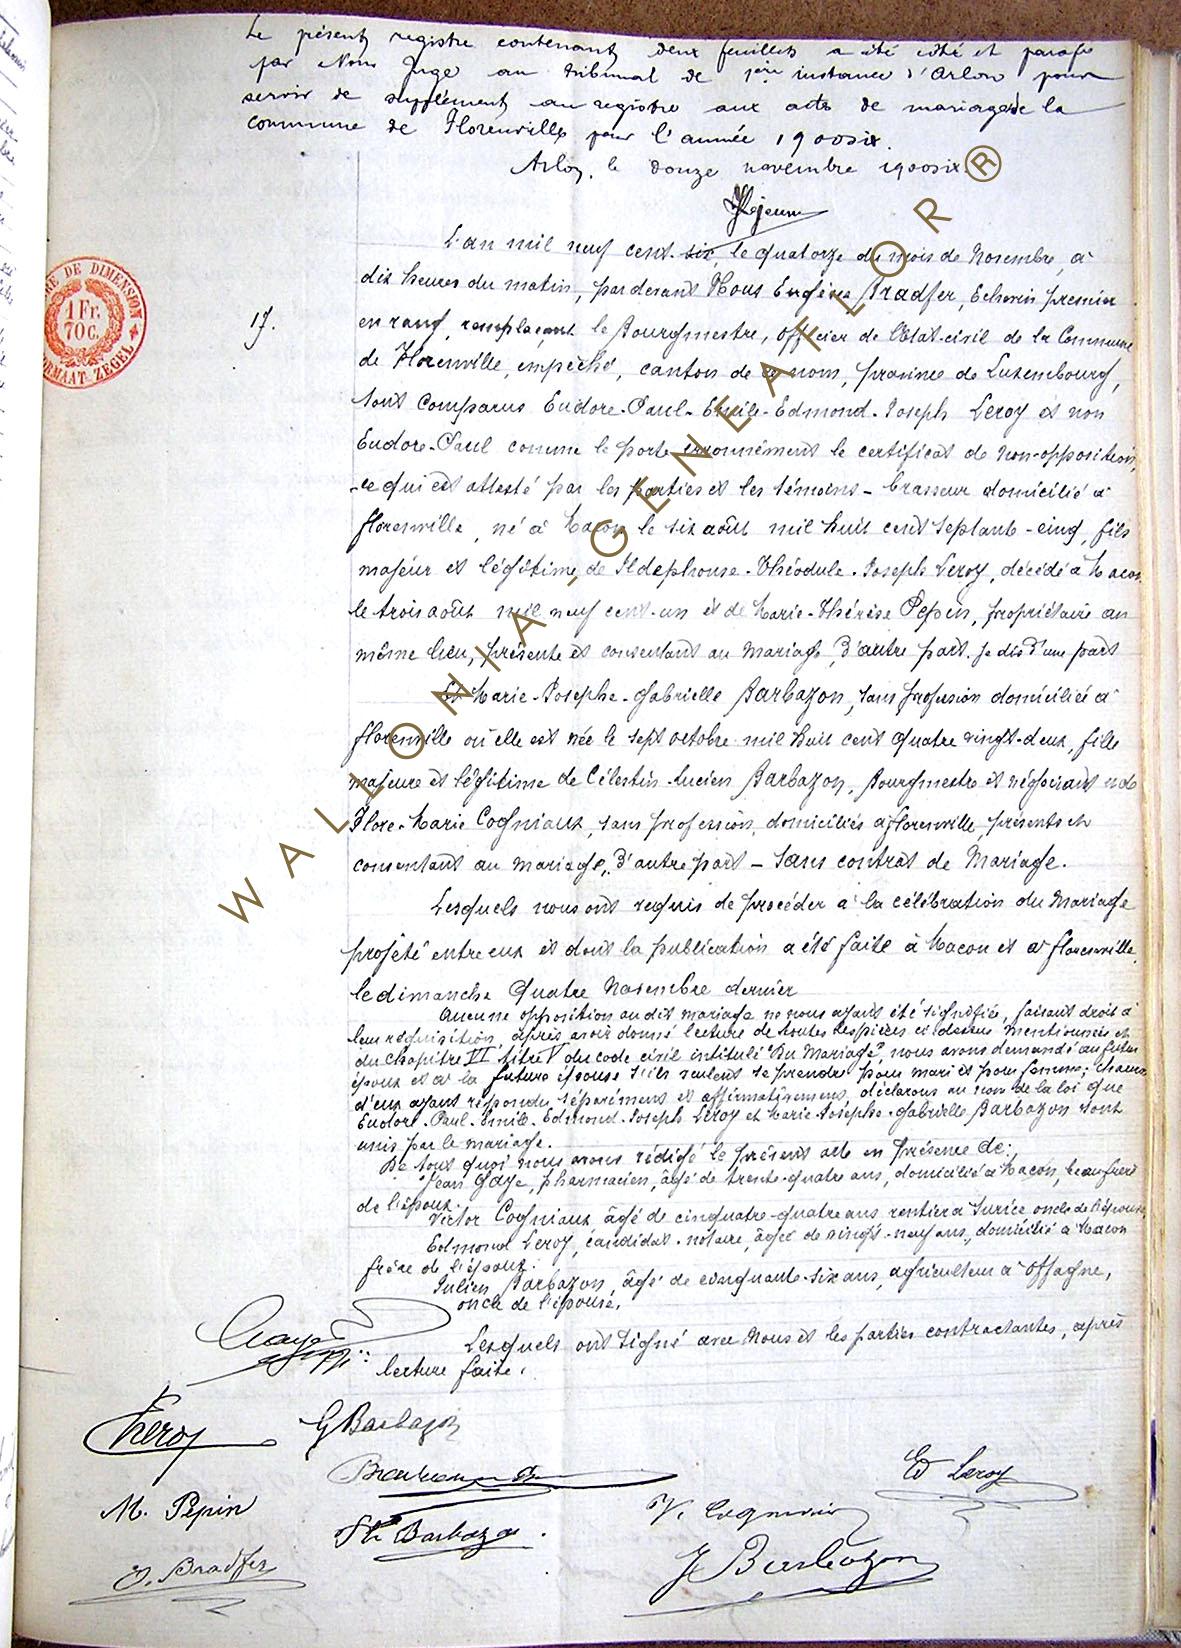 Le présent registre contenant deux feuillets a été coté et parafé
par Nous Juge au tribunal de 1ère instance d'Arlon pour
servir de supplément au registre aux actes de mariages de la
commune de Florenville pour l'année 1900six.
Arlon, le douze novembre 1900six.
Lejeune
TIMBRE DE DIMENSION
1 Fr.
70 C.
FORMAAT ZEGEL
17.
L'an mil neuf cent six, le quatorze du mois de Novembre, à
dix heures du matin, pardevant Nous Eugène Bradfer, Echevin premier
en rang, remplaçant le Bourgmestre, officier de l'Etat-civil de la Commune
de Florenville, empêché, canton de ce nom, province de Luxembourg,
sont comparus Eudore-Paul-Emile-Edmond-Joseph Leroy et non
Eudore-Paul comme le porte erronnément le certificat de non-opposition,
ce qui est attesté par les parties et les témoins - brasseur domicilié à
Florenville, né à Macon le six août mil huit cent septante-cinq, fils
majeur et légitime de Ildephonse-Théodule-Joseph Leroy, décédé à Macon
le trois août mil neuf cent-un et de Marie-Thérèse Pepin, propriétaire au
même lieu, présente et consentant au mariage, d'autre part. je dis d'une part
Et Marie-Josephe-Gabrielle Barbazon, sans profession domiciliée à
Florenville où elle est née le sept octobre mil huit cent quatre vingt-deux, fille
majeure et légitime de Célestin-Lucien Barbazon, Bourgmestre et négociant et de
Flore-Marie Cogniaux, sans profession, domiciliés à Florenville, présents et
consentant au mariage, d'autre part - sans contrat de Mariage.
Lesquels nous ont requis de procéder à la célébration du Mariage
projeté entre eux et dont la publication a été faite à Macon et à Florenville
le dimanche quatre Novembre dernier
Aucune opposition au dit mariage ne nous ayant été signifiée, faisant droit à
leur réquisition, après avoir donné lecture de toutes les pièces ci-dessus mentionnées et
du chapitre VI titre V du code civil intitulé "Du Mariage", nous avons demandé au futur
époux et à la future épouse s'ils veulent se prendre pour mari et pour femme; chacun
d'eux ayant répondu séparément et affirmativement, déclarons au nom de la loi que
Eudore-Paul-Emile-Edmond-Joseph Leroy et Marie-Josephe-Gabrielle Barbazon sont
unis par le mariage.
De tout quoi nous avons rédigé le présent acte en présence de:
Jean Gaye, pharmacien, âgé de trente-quatre ans, domicilié à Macon, beau frère
de l'époux.
Victor Cogniaux âgé de cinquatre-quatre ans rentier à Surice oncle de l'épouse
Edmond Leroy, candidat-notaire, âgé de vingt-neuf ans, domicilié à Macon
frère de l'époux.
Julien Barbazon, âgé de cinquante-six ans, agriculteur à Offagne,
oncle de l'épouse.
Lesquels ont signé avec Nous et les parties contractantes, après
lecture faite.
Leroy
G Barbazon
Ed Leroy
M. Pepin
Barbazon
E. Bradfer
J Barbazon
WALLONIA-GENEAFLOR®